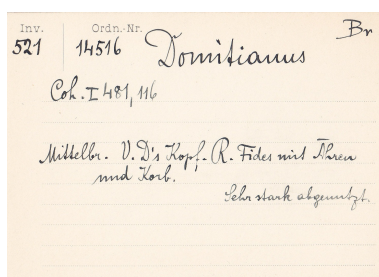 Inv. Ordn.-Nr. Br
521 14516 Domitianus
Coh. I 481, 116
Mittelbr. V. D's Kopf. R. Fides mit Ähren
und Korb.
Sehr stark abgenutzt.